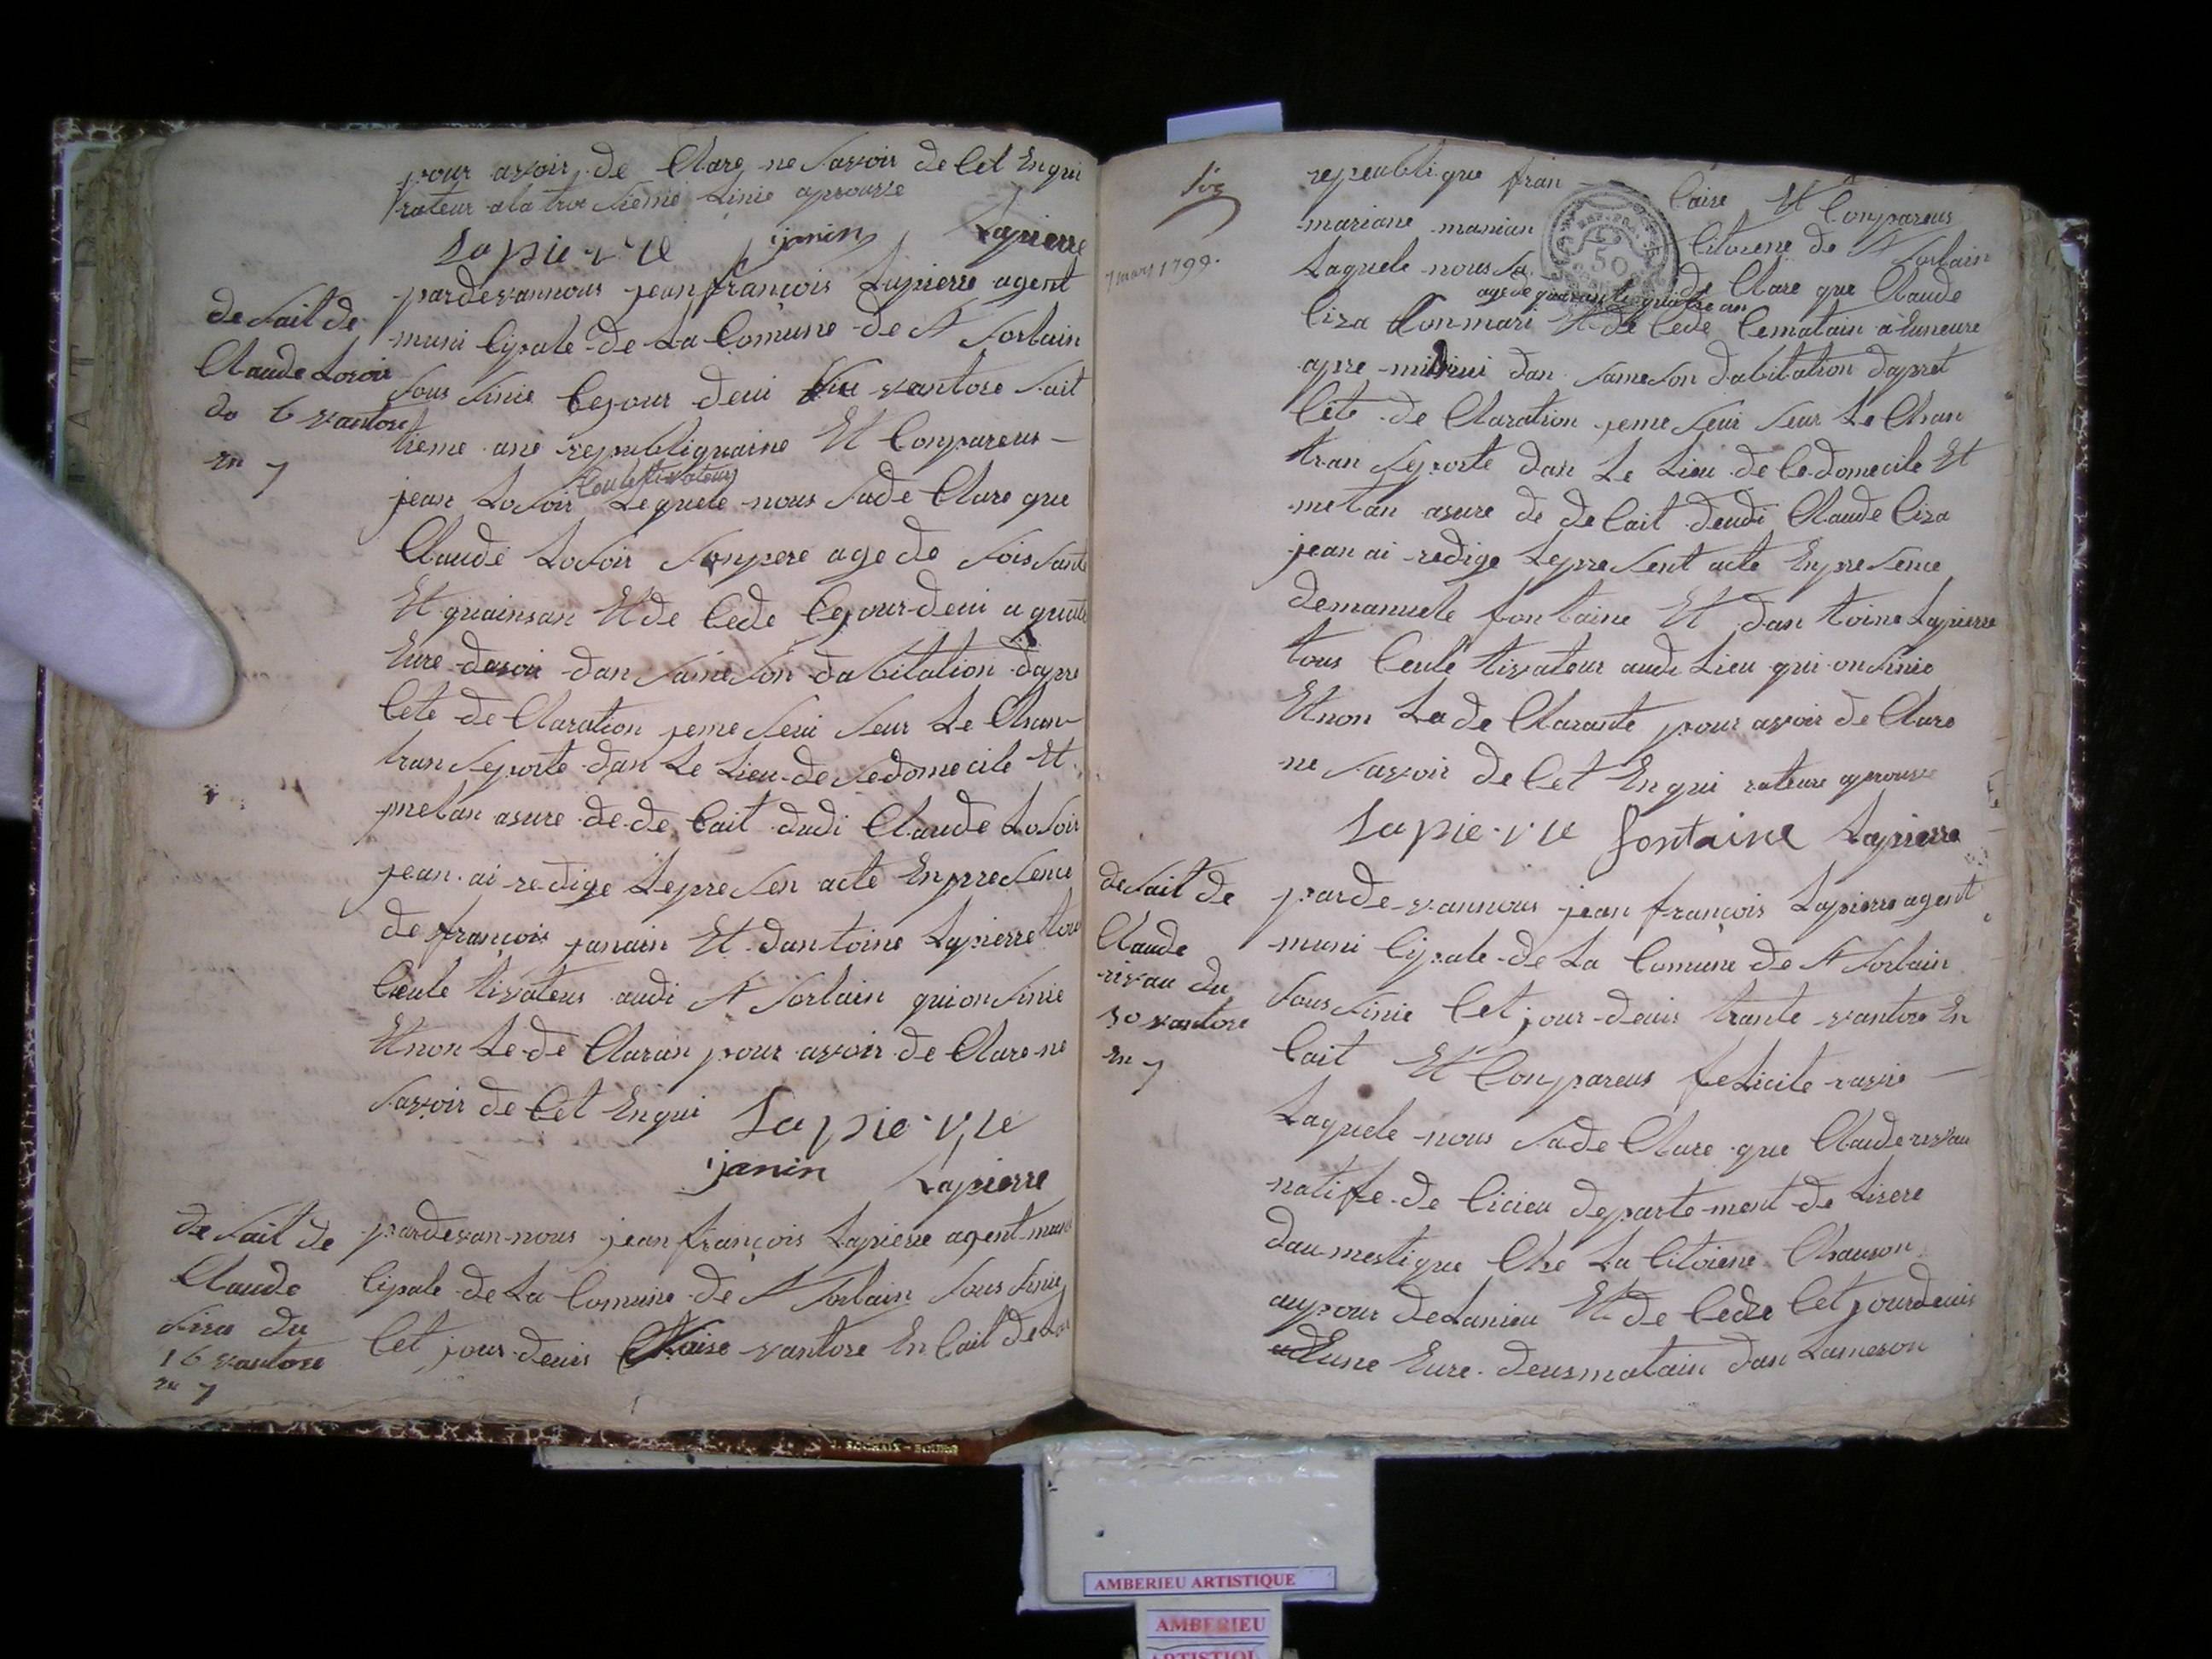 pour avoir de Clare ne savoir de Cet Enqui
rateur a la troi sieme Linie aprouve
Lapierre janin Lapierre
de sait de
Claude Losoir
do 6 vantose
en 7
pardevannous jean françois Lapierre agent
muni Cipale de La Comune de St Sorlain
sous sinie Cejour deui six vantose sait
tieme ane republiquaine Et Conpareus
jean Losoir Ceuletivateur Lequele nous sade Clare que
Claude Losoir sonpere age de soissante
Et quainsan Et de Cede Cejour deui a quatre
Eure dasoir dan sameson dabitation dapre
Cete de Claration jeme seui seur Le Chan
tran seporte dan Le Lieu de sedomecile Et
metan asure de de Cait dudi Claude Losoir
jean ai redige Lepresen acte Enpresence
de françois janain Et dantoine Lapierre tou
Ceule tivateur audi St Sorlain quionsinie
Et non Le de Claran pour avoir de Clare ne
savoir de Cet Enqui Lapierre
janin Lapierre
de sait de
Claude
siza du
16 vantose
en 7
pardevan nous jean françois Lapierre agent muni
Cipale de La Comune de St Sorlain sous sinie
Cet jour deuis saise vantose En Cait de La
7 mars 1799.
republique fran Caise Et Conpareus
mariane manian Citoiene de St Sorlain
Laquele nous sa de Clare que Claude
age de quarante quatre an
Ciza sonmari Et de Cede Cematain a Euneure
apre midi dan sameson dabitation dapret
Cete de Claration jeme seui seur Le Chan
tran seporte dan Le Lieu de Cedomecile Et
metan asure de de Cait deudi Claude Ciza
jean ai redige Lepresent acte Enpresence
demanuele fontaine Et dan toine Lapierre
tous Ceule tivateur audi Lieu qui onsinie
Et non La de Clarante pour avoir de Clare
ne savoir de Cet Enqui rateure aprouve
Lapierre fontaine Lapierre
de sait de
Claude
rivau du
30 vantose
en 7
parde vannous jean françois Lapierre agent
muni Cipale de La Comune de St Sorlain
sous sinie Cet jour deuis trante vantose En
Cait Et Conpareus feLicite ravie
Laquele nous sade Clare que Claude rivau
natife de Cicieu departe ment de Lisere
daumestique Che La Citoiene Chauson
aujour deLanieu Et de Cede Cet jourdeuis
a Eune Eure deusmatain dan Lameson
AMBERIEU ARTISTIQUE
AMBERIEU
ARTISTIQUE